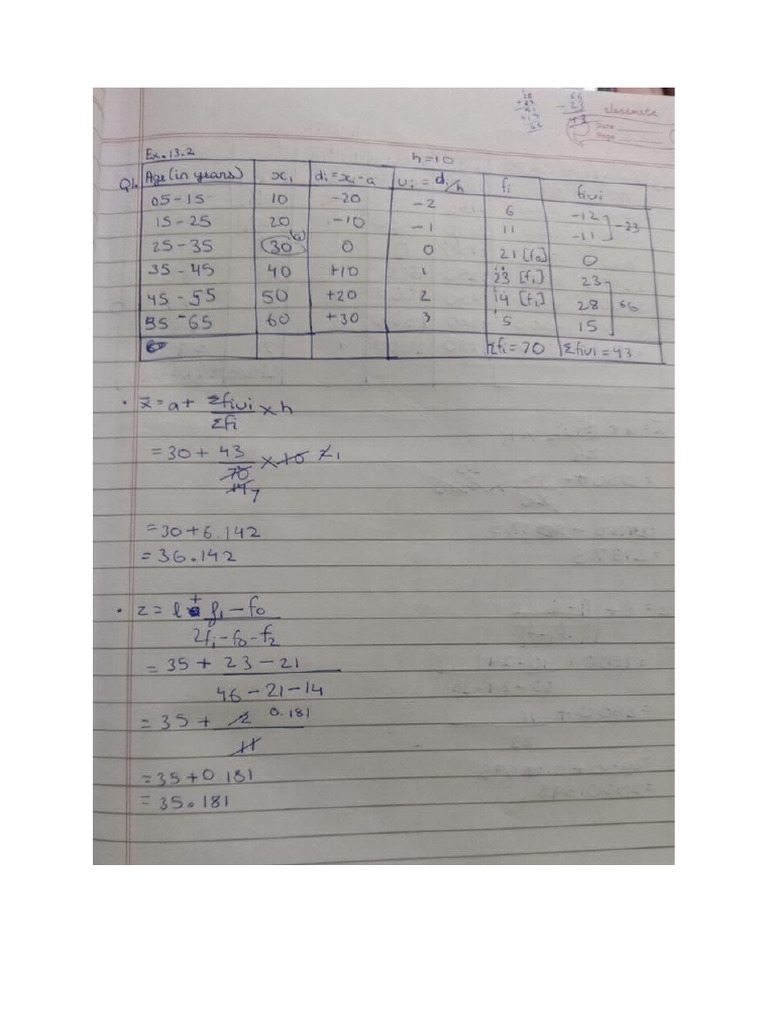 classmate
Date
Page
66
- 23
43
Ex. 13.2
h=10
Q1. Age (in years) | xi | di = xi - a | ui = di/h | fi | fiui
05-15 | 10 | -20 | -2 | 6 | -12
15-25 | 20 | -10 | -1 | 11 | -11 ] -23
25-35 | 30 (a) | 0 | 0 | 21 [f0] | 0
35-45 | 40 | +10 | 1 | 23 [f1] | 23
45-55 | 50 | +20 | 2 | 14 [f2] | 28 ] 66
55-65 | 60 | +30 | 3 | 5 | 15
Σfi = 70 | Σfiui = 43
• x̄ = a + Σfiui/Σfi × h
= 30 + 43/70 × 10
7 1
= 30 + 6.142
= 36.142
• z = l + f1 - f0
2f1 - f0 - f2
= 35 + 23 - 21
46 - 21 - 14
= 35 + 2 0.181
11
= 35 + 0.181
= 35.181